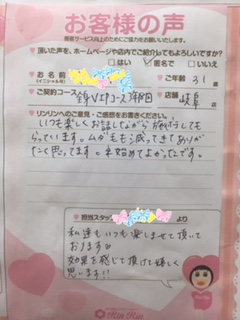 お客様の声
接客サービス向上のためにご協力をお願いいたします。
頂いた声を、ホームページや店内でご紹介してもよろしいですか?
はい ✓匿名で いいえ
お名前
(イニシャル可)
ご年齢 31 歳
ご契約コース 全身VIPコース 18回
店舗 岐阜
リンリンへのご意見・ご感想をお書きください。
いつも楽しくお話しながら施術して
もらっています。ムダ毛も減ってきてありが
たく思ってます。始めてよかったです。
担当スタッフ より
私達もいつも楽しませて頂いて
おります
効果を感じて頂けて嬉しく
思います!!
RinRin